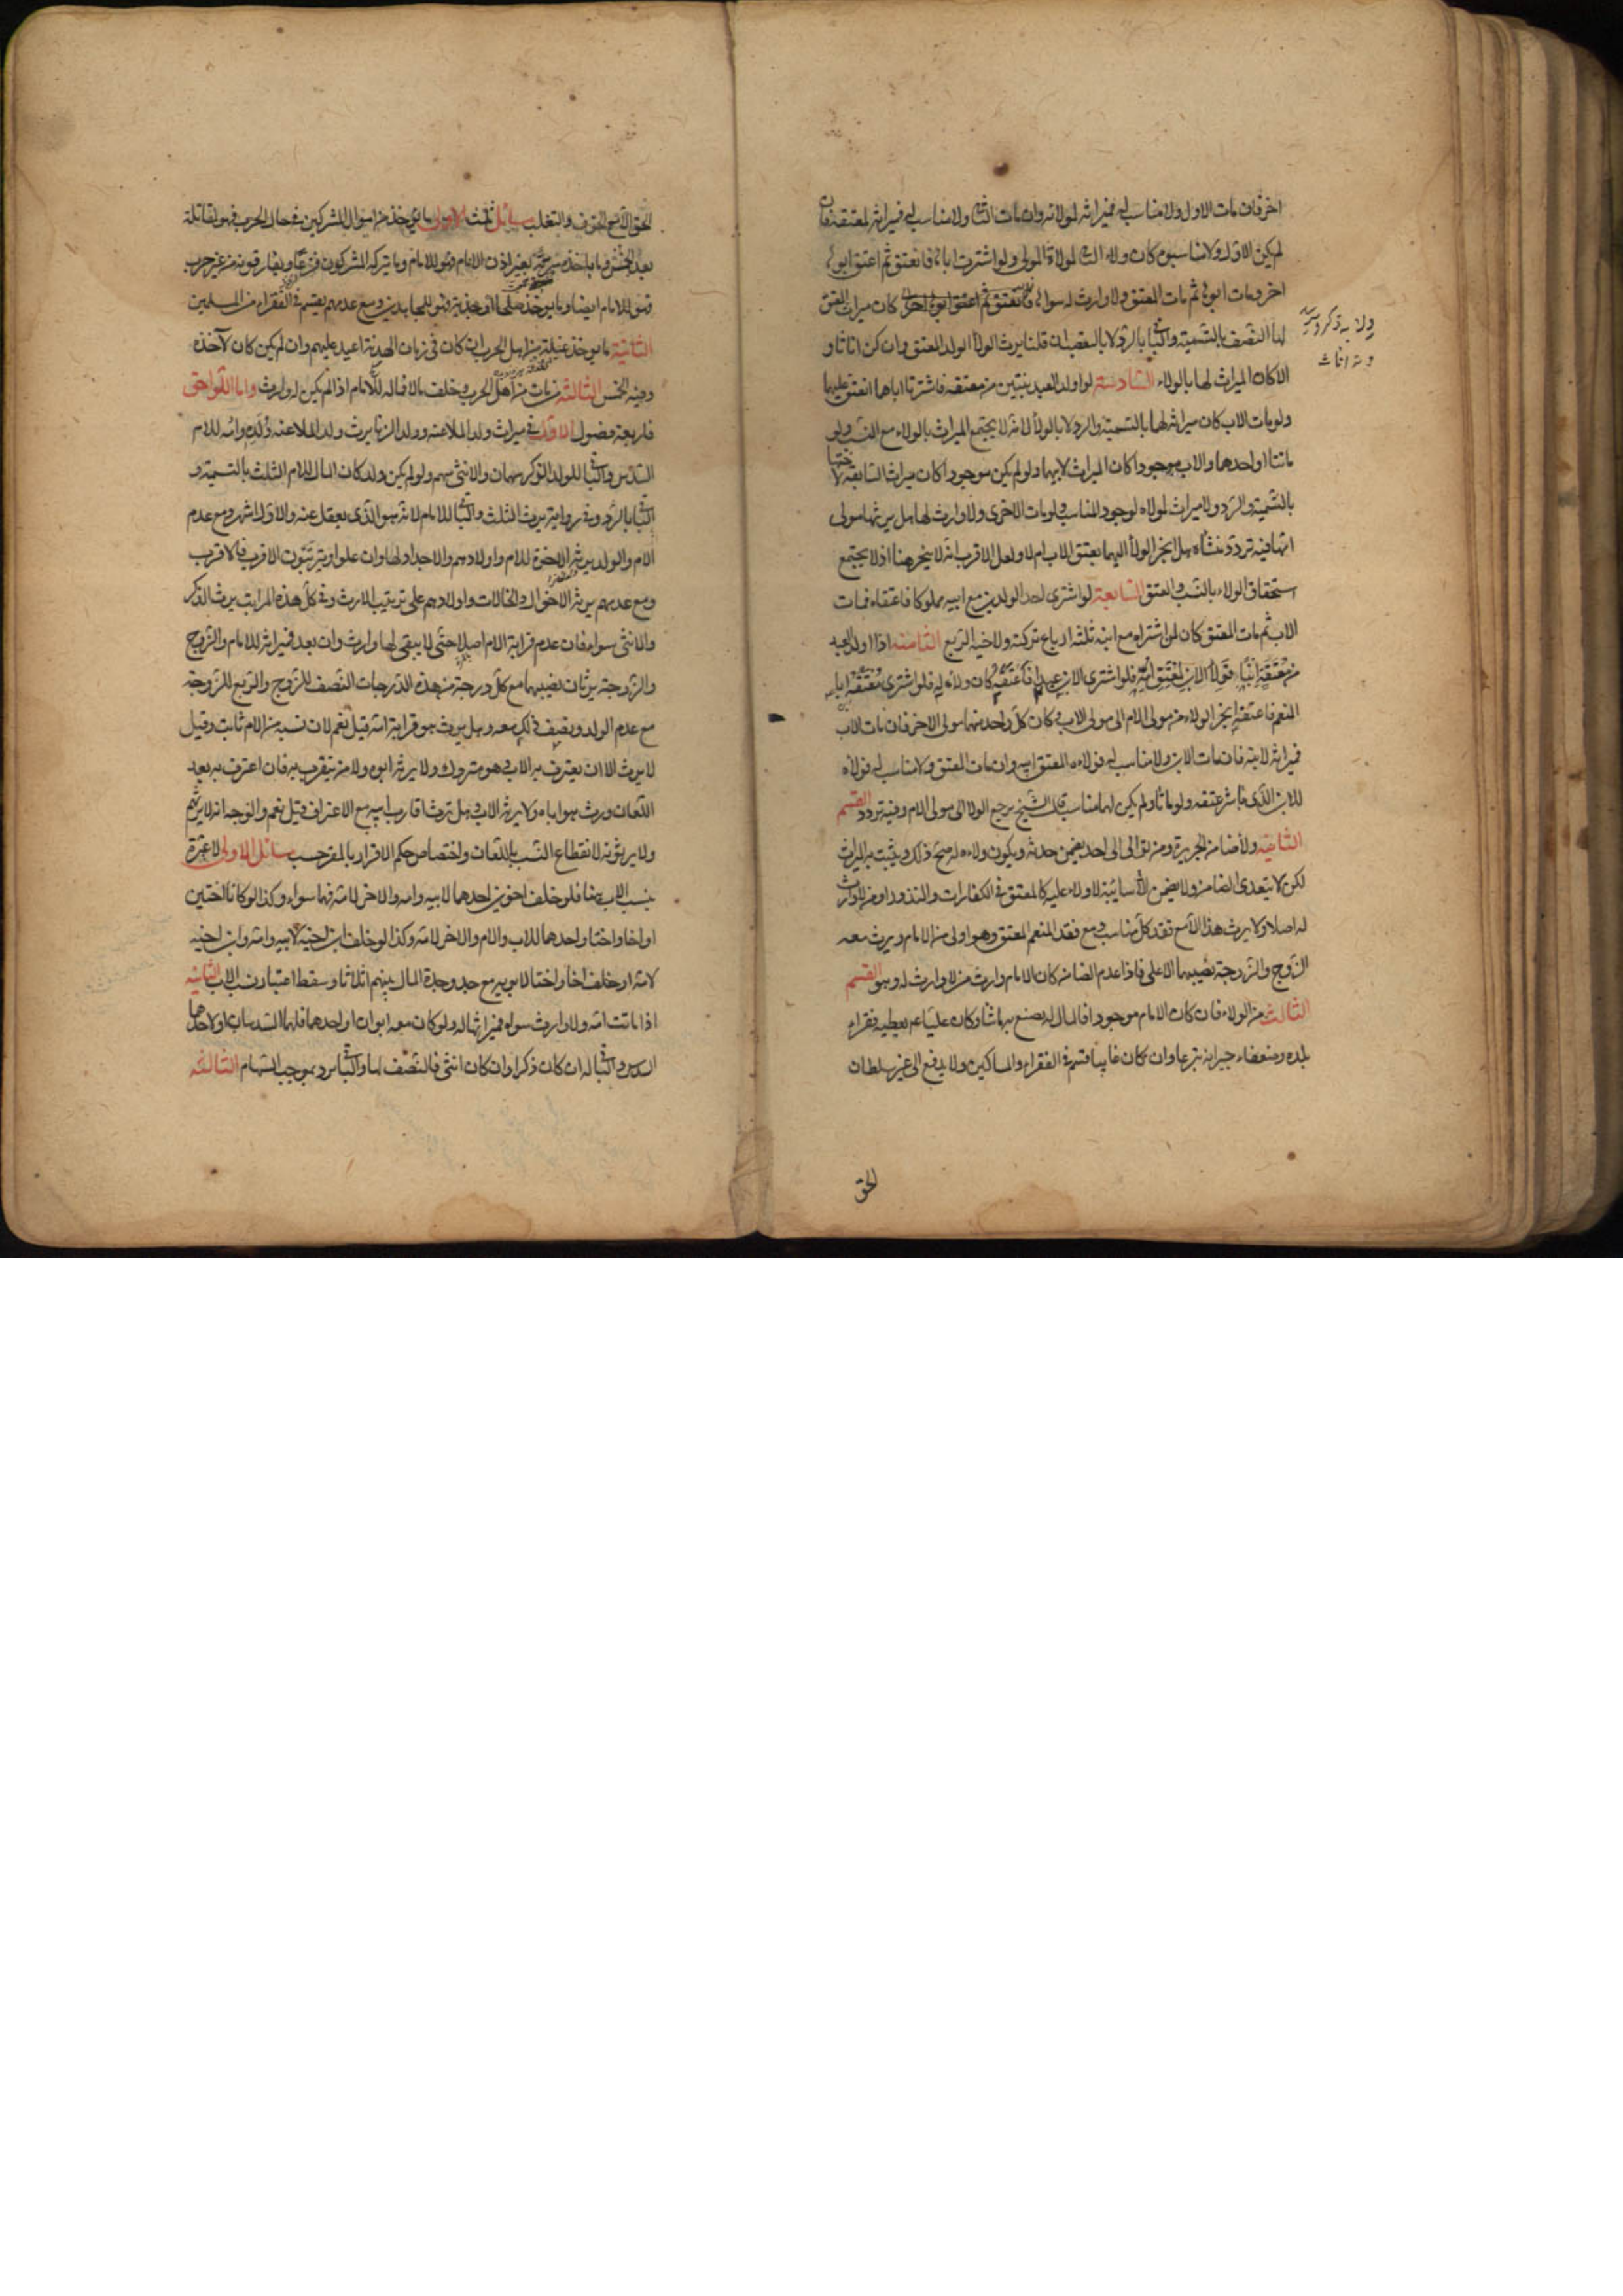 اخر فان مات الاول ولا مناسب له فميراثه لمولاته وان مات الثانى ولا مناسب له فميراثه لمعتقه فان
لم يكن الاول ولا مناسبوه كان ولاء الثانى لمولاة المولى ولو اشترت اباها فانعتق ثم اعتق ابوها
اخر ومات ابوها ثم مات المعتق ولا وارث له سواها كان ميراث المعتق
لها النصف بالتسمية والباقى بالرد لا بالتعصيب ان قلنا يرث الولاء الولد المعتق وان كن اناثا و
الا كان الميراث لها بالولاء السادسة لو اولد العبد بنتين من معتقة فاشترتا اباهما انعتق عليهما
ولو مات الاب كان ميراثه لهما بالتسمية والرد لا بالولاء لانه لا يجتمع الميراث بالولاء مع النسب ولو
ماتتا او احدهما والاب موجود كان الميراث لابيهما ولو لم يكن موجودا كان ميراث السابقة لاختها
بالتسمية والرد ولا ميراث لمولاه لوجود المناسب ولو مات الاخرى ولا وارث لها هل يرثها مولى
امها فيه تردد منشاه هل انجر الولاء اليهما بعتق الاب ام لا ولعل الاقرب انه لا ينجر هنا اذ لا يجتمع
استحقاق الولاء بالنسب والعتق السابعة لو اشترى احد الولدين مع ابيه مملوكا فاعتقاه فمات
الاب ثم مات المعتق كان للذى اشتراه مع ابيه ثلثة ارباع تركته ولاخيه الربع الثامنة اذا اولد العبد
من معتقة ابنا فولاء الابن لمعتق امه فلو اشترى الابن عبدا فاعتقه كان ولاءه له فلو اشترى معتقه ابا
المنعم فاعتقه انجر الولاء من مولى الام الى مولى الاب فكان كل واحد منهما مولى الاخر فان مات الاب
فميراثه لابنه فان مات الابن ولا مناسب له فولاءه لمعتق ابيه وان مات المعتق ولا مناسب له فولاءه
للابن الذى باشر عتقه ولو ماتا ولم يكن لهما مناسب قال الشيخ يرجع الولاء الى مولى الام وفيه تردد القسم
الثانى ولاء ضامن الجريرة ومن توالى الى احد يضمن حدثه ويكون ولاءه له صح ذلك ويثبت به الميراث
لكن لا يتعدى الضامن ولا يضمن الا سائبة لا ولاء عليه كالمعتق فى الكفارات والنذور او من لا وارث
له اصلا ولا يرث هذا الا مع فقد كل مناسب ومع فقد المنعم المعتق وهو اولى من الامام ويرث معه
الزوج والزوجة نصيبهما الاعلى فاذا عدم الضامن كان الامام وارث من لا وارث له وهو القسم
الثالث من الولاء فان كان الامام موجودا فالمال له يصنع به ما شاء وكان على ع يعطيه فقراء
بلده وضعفاء جيرانه تبرعا وان كان غايبا قسم فى الفقراء والمساكين ولا يدفع الى غير سلطان
الحق
الحق الا مع الخوف والتغلب مسائل ثلث الاولى ما يوخذ من اموال المشركين فى حال الحرب فهو لمقاتلة
بعد الخمس وما ياخذه سرية بغير اذن الامام فهو للامام وما يتركه المشركون فزعا ويفارقونه من غير حرب
فهو للامام ايضا وما يوخذ صلحا او جزية فهو للمجاهدين ومع عدمهم يقسم فى الفقراء من المسلمين
الثانية ما يوخذ غيلة من اهل الحرب ان كان فى زمان الهدنة اعيد عليهم وان لم يكن كان لآخذه
وفيه الخمس الثالثة من مات من اهل الحرب وخلف مالا فماله للامام اذا لم يكن له وارث واما اللواحق
فاربعة فصول الاول فى ميراث ولد الملاعنة وولد الزنا يرث ولد الملاعنة ولده وامه للام
السدس والباقى للولد للذكر سهمان وللانثى سهم ولو لم يكن ولد كان المال للام الثلث بالتسمية و
الباقى بالرد وفى رواية يرث الثلث والباقى للامام لانه هو الذى يعقل عنه والاول اشهر ومع عدم
الام والولد يرثه الاخوة للام واولادهم والاجداد لها وان علوا ويترتبون الاقرب فالاقرب
ومع عدمهم يرثه الاخوال والخالات واولادهم على ترتيب الارث وفى كل هذه المراتب يرث الذكر
والانثى سواء فان عدم قرابة الام اصلا حتى لا يبقى لها وارث وان بعد فميراثه للامام والزوج
والزوجة يرثان نصيبهما مع كل درجة من هذه الدرجات النصف للزوج والربع للزوجة
مع عدم الولد ونصف ذلك معه وهل يرث هو قرابة امه قيل نعم لان نسبه من الام ثابت وقيل
لا يرث الا ان يعترف به الاب وهو متروك ولا يرثه ابوه ولا من يتقرب به فان اعترف به بعد
اللعان ورث هو اباه ولا يرثه الاب وهل يرث اقارب ابيه مع الاعتراف قيل نعم والوجه انه لا يرثهم
ولا يرثونه لانقطاع النسب باللعان واختصاص حكم الاقرار بالمقر حسب مسائل الاولى لا عبرة
بنسب الاب هنا فلو خلف اخوين احدهما لابيه وامه والاخر لامه فهما سواء وكذا لو كانا اختين
او اخا واختا واحدهما للاب والام والاخر للام وكذا لو خلف ابن اخيه لابيه وامه وابن اخيه
لامه او خلف اخا واختا لابويه مع جد وجدة المال بينهم اثلاثا وسقط اعتبار نسب الاب الثانية
اذا ماتت امه ولا وارث سواه فميراثها له ولو كان معه ابوان او احدهما فلهما السدسان او لاحدهما
السدس والباقى له ان كان ذكرا وان كان انثى فالنصف لها والباقى يرد بموجب السهام الثالثة